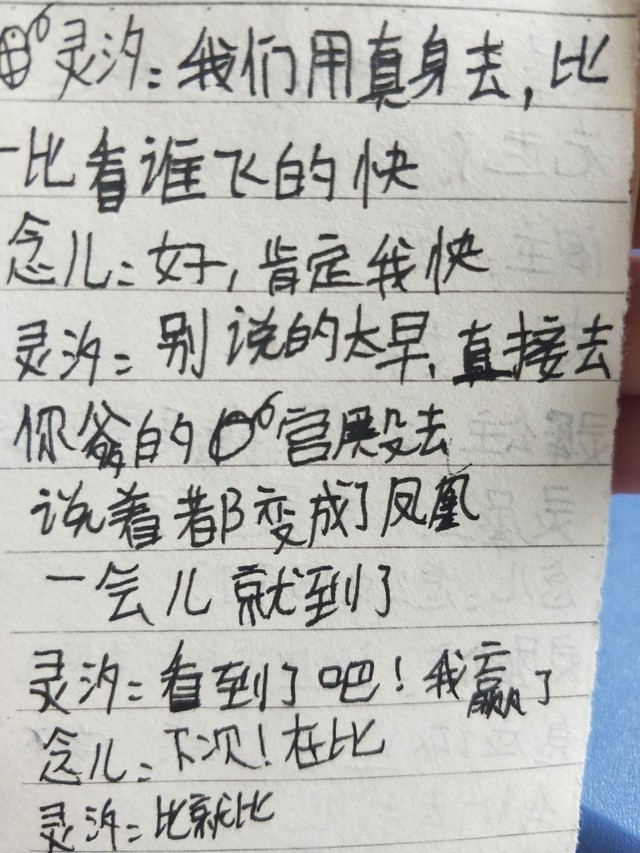 灵汐：我们用真身去，比
一比看谁飞的快
念儿：好，肯定我快
灵汐：别说的太早，直接去
你爹的宫殿去
说着都变成了凤凰
一会儿就到了
灵汐：看到了吧！我赢了
念儿：下次！在比
灵汐：比就比